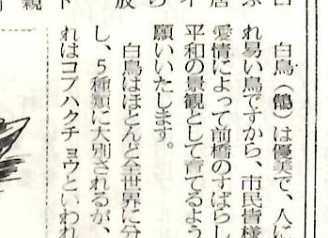 白鳥(鵠)は優美で、人に
れ易い鳥ですから、市民皆様
愛情によって前橋のすばらし
平和の景観として育てるよう
願いいたします。
白鳥はほとんど全世界に分
し、5種類に大別されるが、
れはコブハクチョウといわれ
ト
親